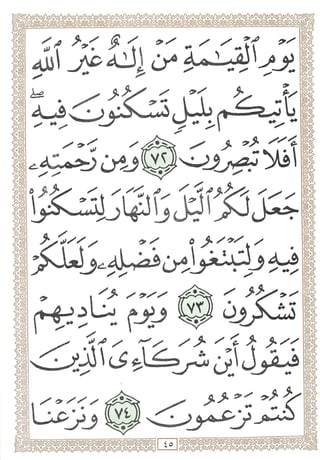 يَوْمِ ٱلْقِيَـٰمَةِ مَنْ إِلَـٰهٌ غَيْرُ ٱللَّهِ
يَأْتِيكُم بِلَيْلٍۢ تَسْكُنُونَ فِيهِ ۖ
أَفَلَا تُبْصِرُونَ ٧٢ وَمِن رَّحْمَتِهِۦ
جَعَلَ لَكُمُ ٱلَّيْلَ وَٱلنَّهَارَ لِتَسْكُنُوا۟
فِيهِ وَلِتَبْتَغُوا۟ مِن فَضْلِهِۦ وَلَعَلَّكُمْ
تَشْكُرُونَ ٧٣ وَيَوْمَ يُنَادِيهِمْ
فَيَقُولُ أَيْنَ شُرَكَآءِىَ ٱلَّذِينَ
كُنتُمْ تَزْعُمُونَ ٧٤ وَنَزَعْنَا
٤٥